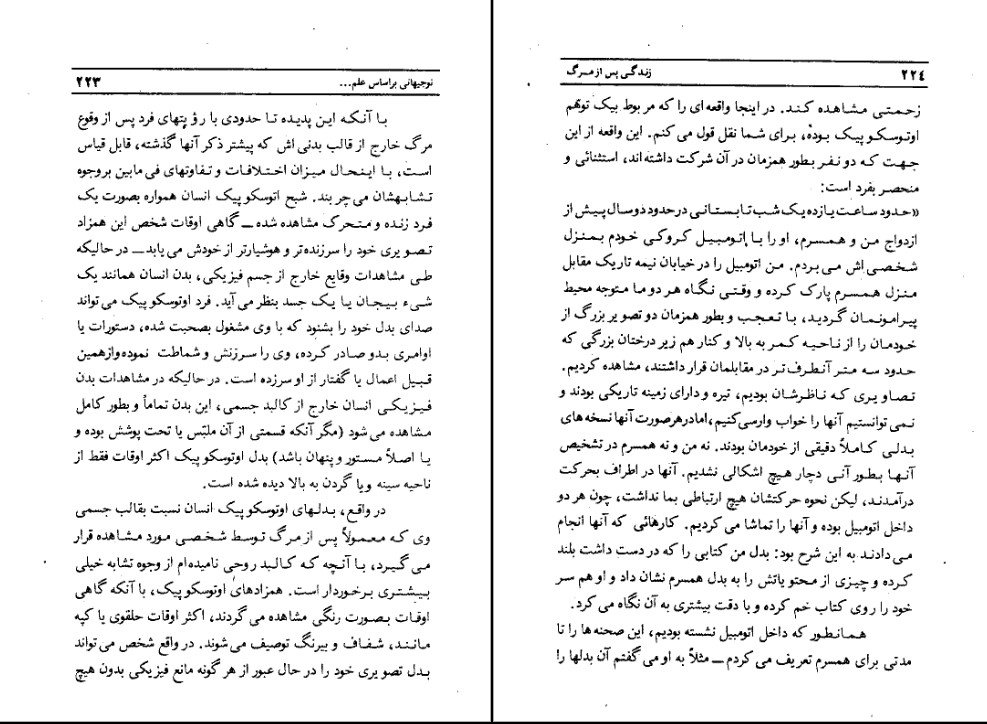 توجیهاتی براساس علم... ۲۲۳
با آنکه این پدیده تا حدودی با رؤیتهای فرد پس از وقوع
مرگ خارج از قالب بدنی اش که پیشتر ذکر آنها گذشته، قابل قیاس
است، با اینحال میزان اختلافات و تفاوتهای فی مابین بروجوه
تشابهشان می چربند. شبح اتوسکوپیک انسان همواره بصورت یک
فرد زنده و متحرک مشاهده شده ــ گاهی اوقات شخص این همزاد
تصویری خود را سرزنده تر و هوشیارتر از خودش می یابد ــ در حالیکه
طی مشاهدات وقایع خارج از جسم فیزیکی، بدن انسان همانند یک
شیء بیجان یا یک جسد بنظر می آید. فرد اوتوسکوپیک می تواند
صدای بدل خود را بشنود که با وی مشغول بصحبت شده، دستورات یا
اوامری بدو صادر کرده، وی را سرزنش و شماطت نموده وازهمین
قبیل اعمال یا گفتار از او سرزده است. در حالیکه در مشاهدات بدن
فیزیکی انسان خارج از کالبد جسمی، این بدن تماماً و بطور کامل
مشاهده می شود (مگر آنکه قسمتی از آن ملبّس یا تحت پوشش بوده و
یا اصلاً مستور و پنهان باشد) بدل اوتوسکوپیک اکثر اوقات فقط از
ناحیه سینه و یا گردن به بالا دیده شده است.
در واقع، بدلهای اوتوسکوپیک انسان نسبت بقالب جسمی
وی که معمولاً پس از مرگ توسط شخصی مورد مشاهده قرار
می گیرد، با آنچه که کالبد روحی نامیده ام از وجوه تشابه خیلی
بیشتری برخوردار است. همزادهای اوتوسکوپیک، با آنکه گاهی
اوقات بصورت رنگی مشاهده می گردند، اکثر اوقات حلقوی یا کپه
مانند، شفاف و بیرنگ توصیف می شوند. در واقع شخص می تواند
بدل تصویری خود را در حال عبور از هر گونه مانع فیزیکی بدون هیچ
۲۲٤ زندگی پس از مرگ
زحمتی مشاهده کند. در اینجا واقعه ای را که مربوط بیک توهّم
اوتوسکوپیک بوده، برای شما نقل قول می کنم. این واقعه از این
جهت که دو نفر بطور همزمان در آن شرکت داشته اند، استثنائی و
منحصر بفرد است:
«حدود ساعت یازده یک شب تابستانی در حدود دو سال پیش از
ازدواج من و همسرم، او را با اتومبیل کروکی خودم بمنزل
شخصی اش می بردم. من اتومبیل را در خیابان نیمه تاریک مقابل
منزل همسرم پارک کرده و وقتی نگاه هر دو ما متوجه محیط
پیرامونمان گردید، با تعجب و بطور همزمان دو تصویر بزرگ از
خودمان را از ناحیه کمر به بالا و کنار هم زیر درختان بزرگی که
حدود سه متر آنطرف تر در مقابلمان قرار داشتند، مشاهده کردیم.
تصاویری که ناظرشان بودیم، تیره و دارای زمینه تاریکی بودند و
نمی توانستیم آنها را خواب وارسی کنیم، امادرهرصورت آنها نسخه های
بدلی کاملاً دقیقی از خودمان بودند. نه من و نه همسرم در تشخیص
آنها بطور آنی دچار هیچ اشکالی نشدیم. آنها در اطراف بحرکت
درآمدند، لیکن نحوه حرکتشان هیچ ارتباطی بما نداشت، چون هر دو
داخل اتومبیل بوده و آنها را تماشا می کردیم. کارهائی که آنها انجام
می دادند به این شرح بود: بدل من کتابی را که در دست داشت بلند
کرده و چیزی از محتویاتش را به بدل همسرم نشان داد و او هم سر
خود را روی کتاب خم کرده و با دقت بیشتری به آن نگاه می کرد.
همانطور که داخل اتومبیل نشسته بودیم، این صحنه ها را تا
مدتی برای همسرم تعریف می کردم ــ مثلاً به او می گفتم آن بدلها را